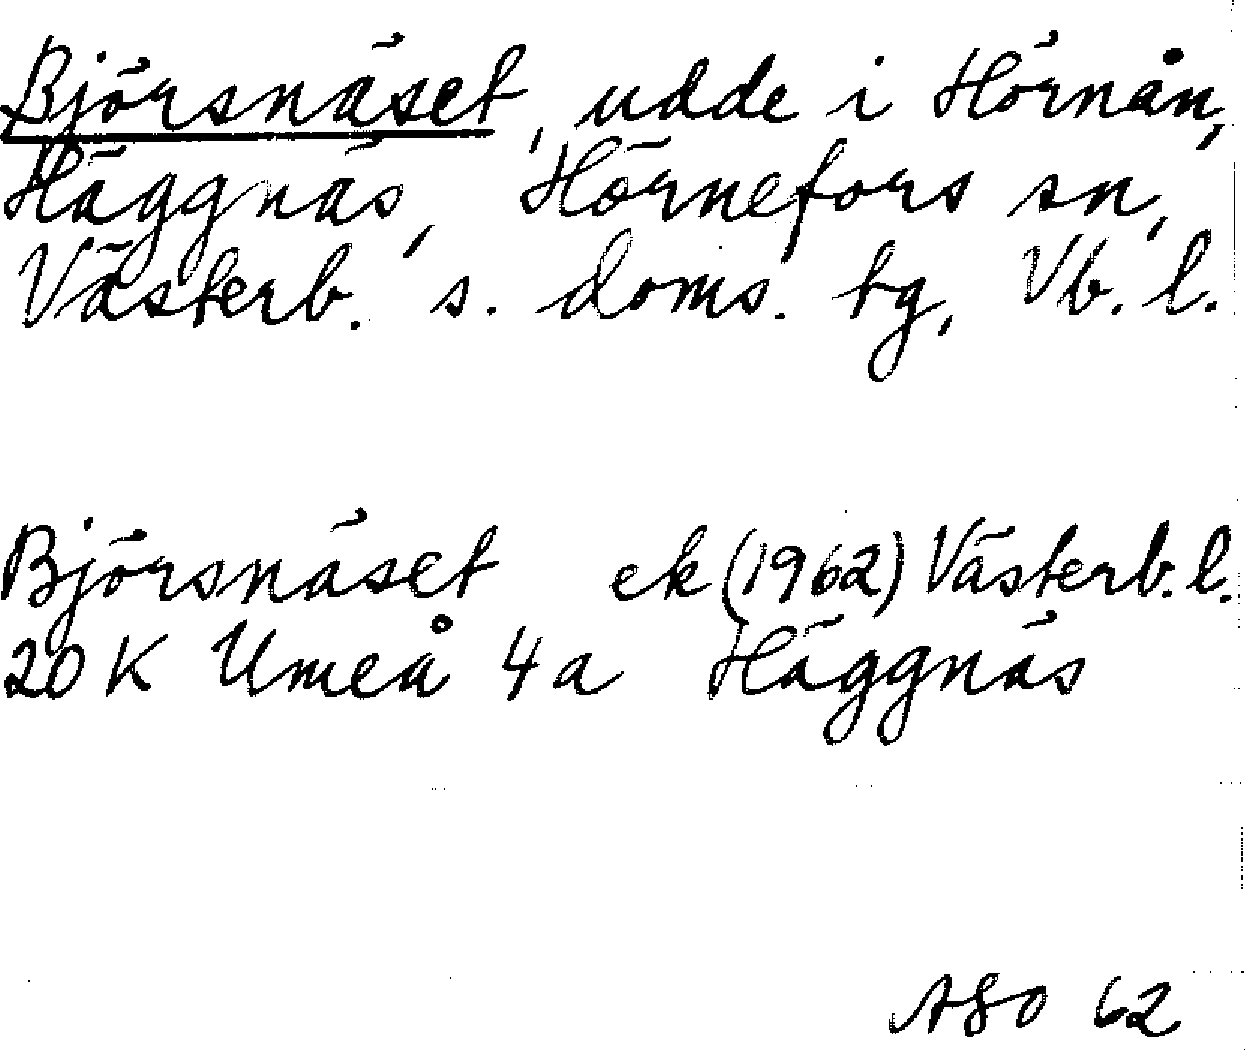 Björsnäset, udde i Hörnån,
Häggnäs, Hörnefors sn,
Västerb. s. doms. tg, Vb. l.
Björsnäset ek (1962) Västerb. l.
20 K Umeå 4 a Häggnäs
ASO 62